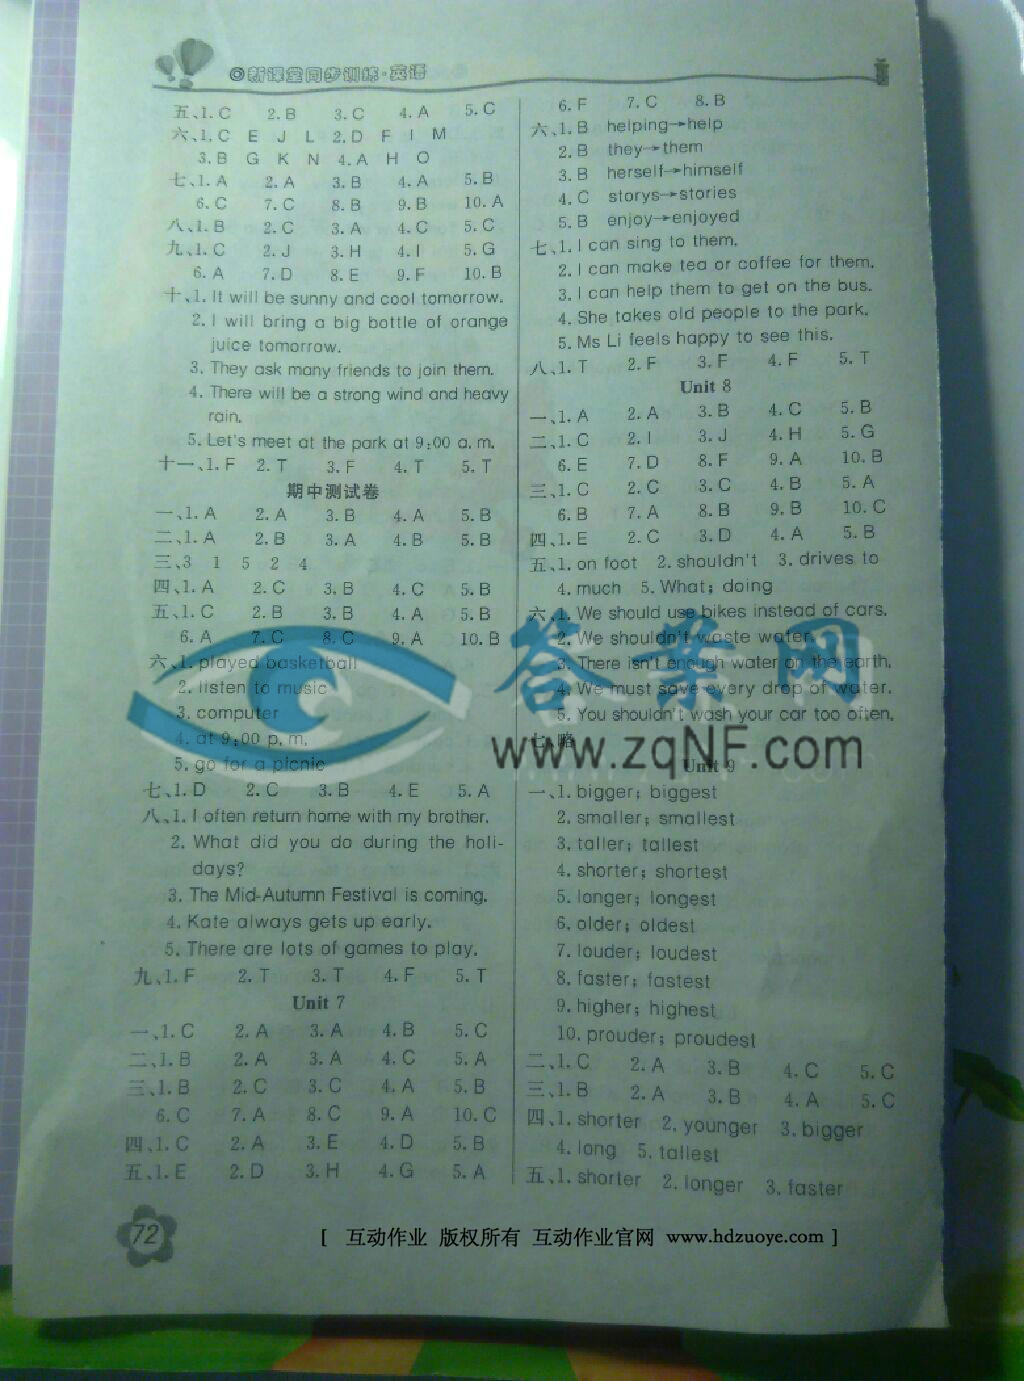 新课堂同步训练·英语
五、1. C 2. B 3. C 4. A 5. C
六、1. C E J L 2. D F I M
3. B G K N 4. A H O
七、1. A 2. A 3. B 4. A 5. B
6. C 7. C 8. B 9. B 10. A
八、1. B 2. C 3. A 4. C 5. C
九、1. C 2. J 3. H 4. I 5. G
6. A 7. D 8. E 9. F 10. B
十、1. It will be sunny and cool tomorrow.
2. I will bring a big bottle of orange
juice tomorrow.
3. They ask many friends to join them.
4. There will be a strong wind and heavy
rain.
5. Let's meet at the park at 9:00 a. m.
十一、1. F 2. T 3. F 4. T 5. T
期中测试卷
一、1. A 2. A 3. B 4. A 5. B
二、1. A 2. B 3. A 4. B 5. B
三、3 1 5 2 4
四、1. A 2. C 3. B 4. C 5. B
五、1. C 2. B 3. B 4. A 5. B
6. A 7. C 8. C 9. A 10. B
六、1. played basketball
2. listen to music
3. computer
4. at 9:00 p. m.
5. go for a picnic
七、1. D 2. C 3. B 4. E 5. A
八、1. I often return home with my brother.
2. What did you do during the holi-
days?
3. The Mid-Autumn Festival is coming.
4. Kate always gets up early.
5. There are lots of games to play.
九、1. F 2. T 3. T 4. F 5. T
Unit 7
一、1. C 2. A 3. A 4. B 5. C
二、1. B 2. A 3. A 4. C 5. A
三、1. B 2. C 3. C 4. A 5. B
6. C 7. A 8. C 9. A 10. C
四、1. C 2. A 3. E 4. D 5. B
五、1. E 2. D 3. H 4. G 5. A
6. F 7. C 8. B
六、1. B helping→help
2. B they→them
3. B herself→himself
4. C storys→stories
5. B enjoy→enjoyed
七、1. I can sing to them.
2. I can make tea or coffee for them.
3. I can help them to get on the bus.
4. She takes old people to the park.
5. Ms Li feels happy to see this.
八、1. T 2. F 3. F 4. F 5. T
Unit 8
一、1. A 2. A 3. B 4. C 5. B
二、1. C 2. I 3. J 4. H 5. G
6. E 7. D 8. F 9. A 10. B
三、1. C 2. C 3. C 4. B 5. A
6. B 7. A 8. B 9. B 10. C
四、1. E 2. C 3. D 4. A 5. B
五、1. on foot 2. shouldn't 3. drives to
4. much 5. What; doing
六、1. We should use bikes instead of cars.
2. We shouldn't waste water.
3. There isn't enough water on the earth.
4. We must save every drop of water.
5. You shouldn't wash your car too often.
七、略
Unit 9
一、1. bigger; biggest
2. smaller; smallest
3. taller; tallest
4. shorter; shortest
5. longer; longest
6. older; oldest
7. louder; loudest
8. faster; fastest
9. higher; highest
10. prouder; proudest
二、1. C 2. A 3. B 4. C 5. C
三、1. B 2. A 3. B 4. A 5. C
四、1. shorter 2. younger 3. bigger
4. long 5. tallest
五、1. shorter 2. longer 3. faster
72
答案网
www.zqNF.com
[ 互动作业 版权所有 互动作业官网 www.hdzuoye.com ]